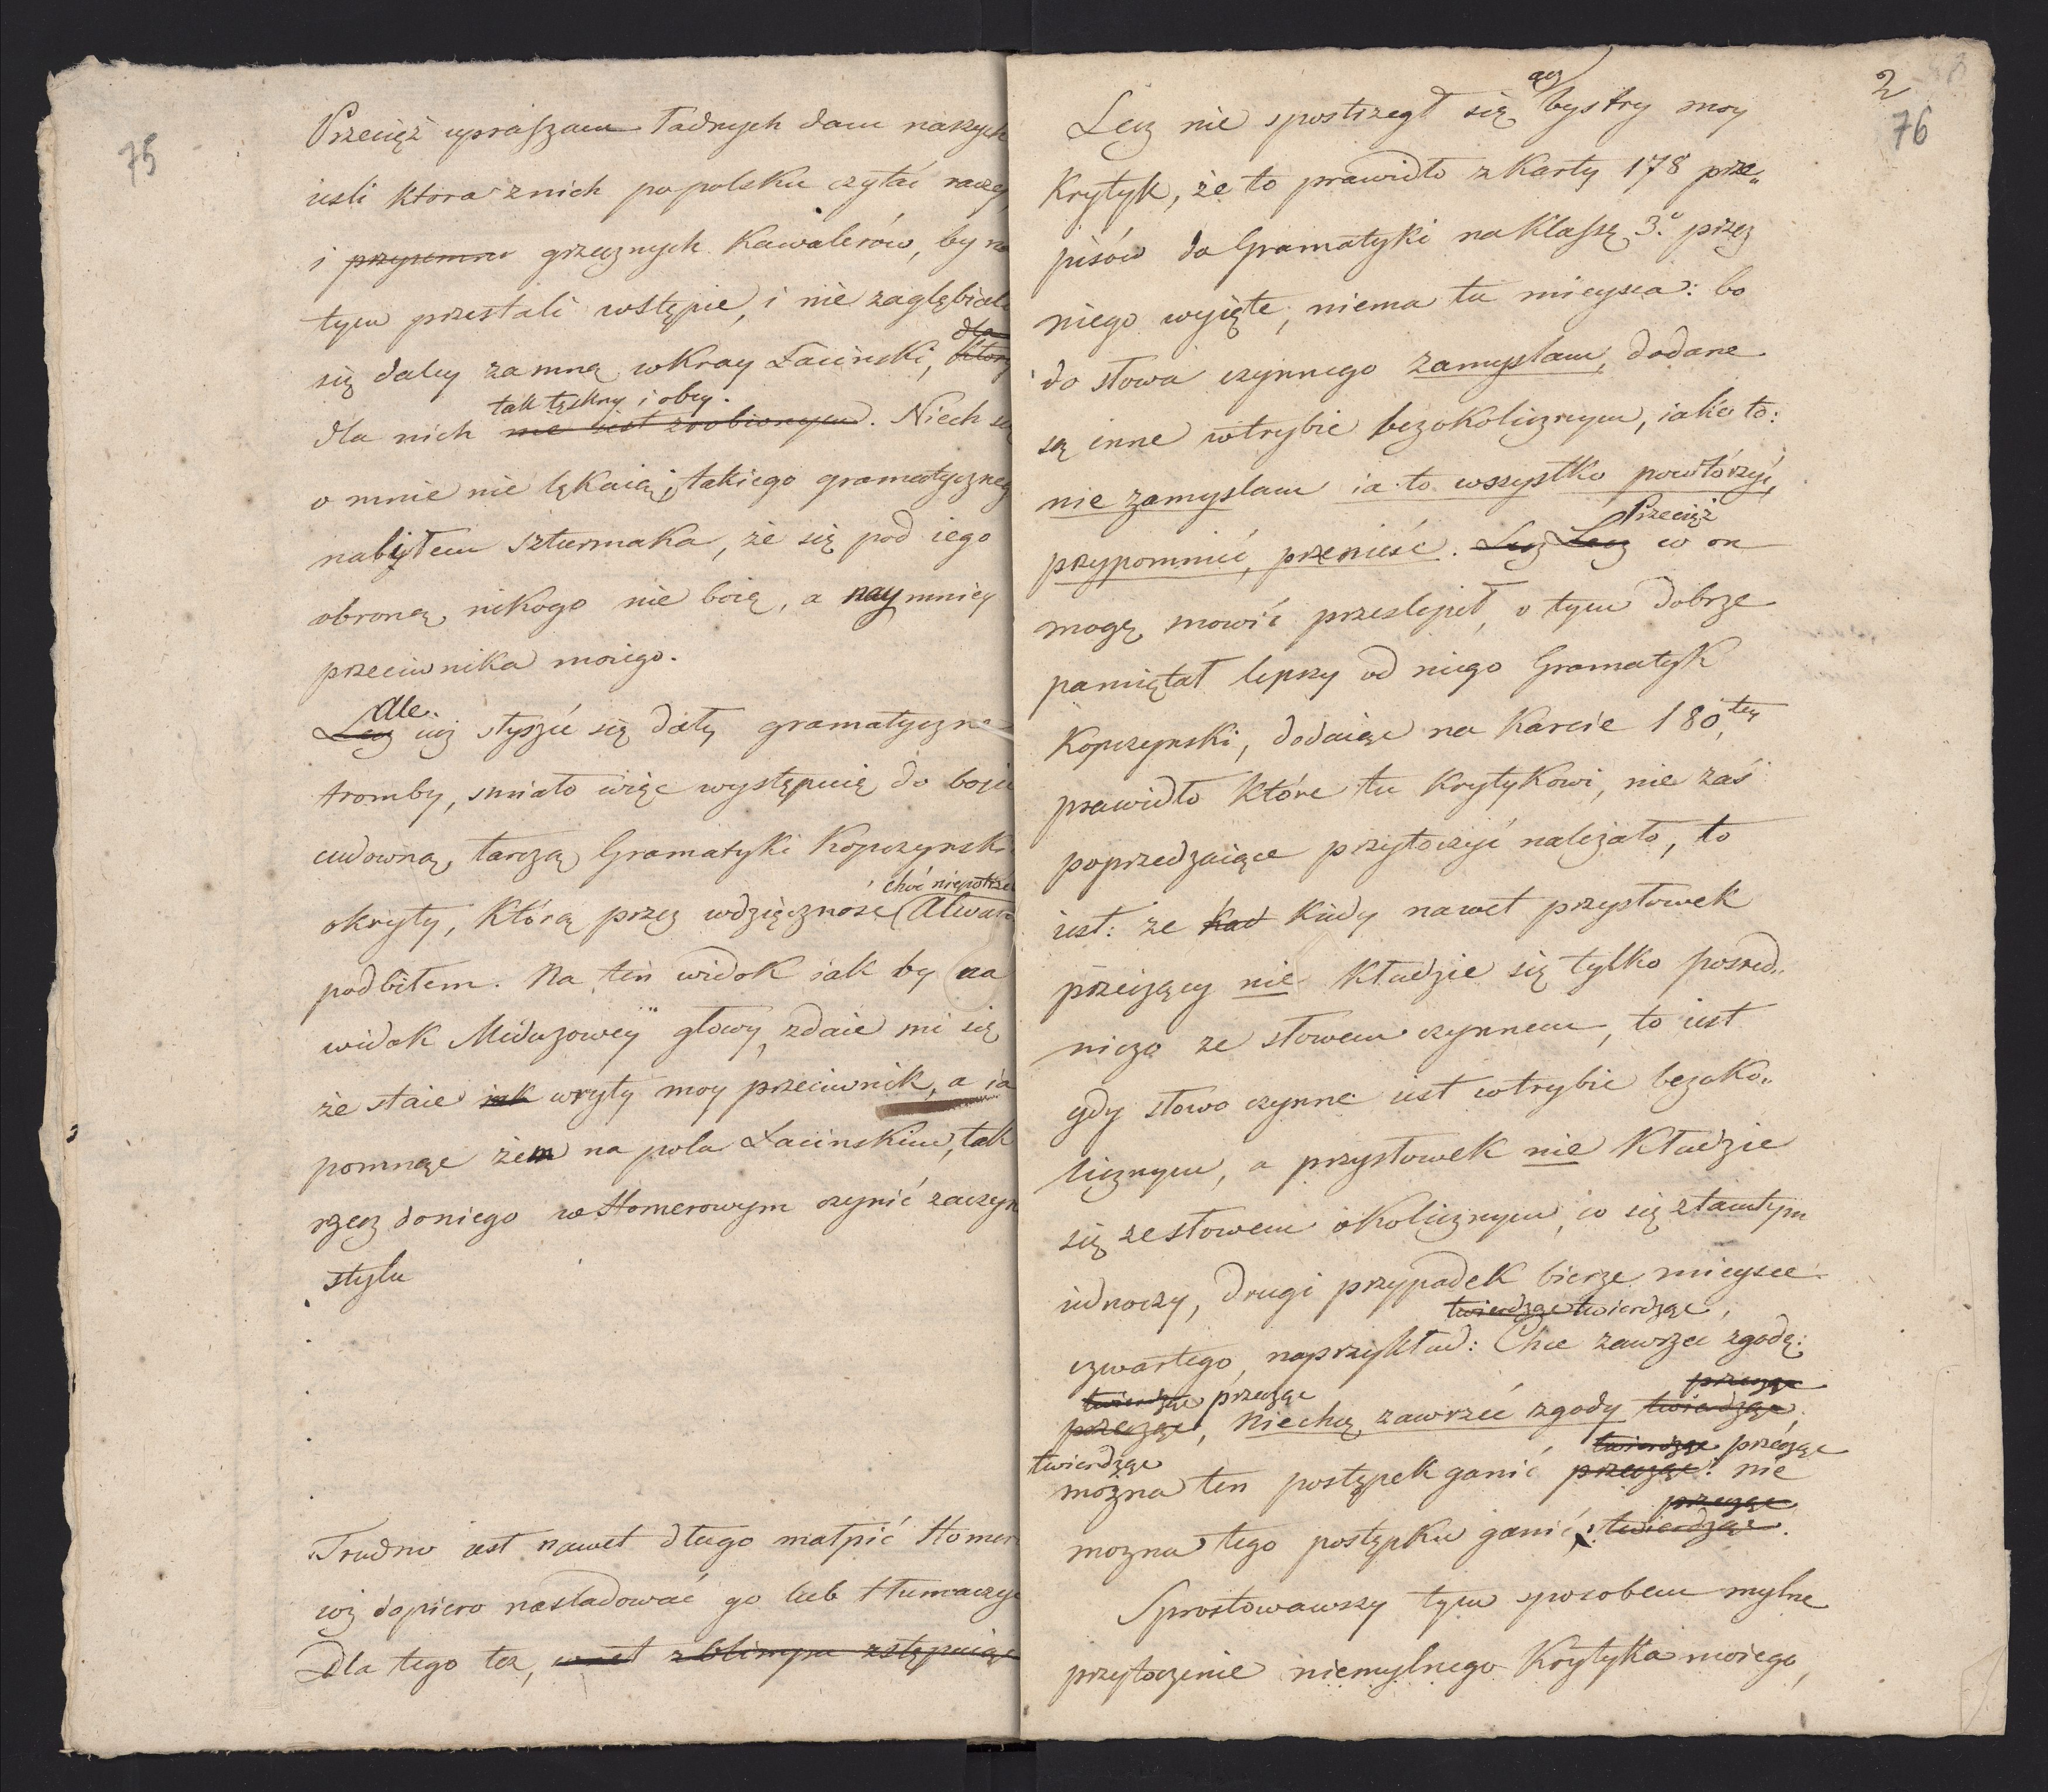 75
Przecięż upraszam ładnych dam naszych
iesli ktora z nich po polsku czytać raczy,
i przyiemno grzecznych Kawalerów, by na
tym przestali wstępie, i nie zagłębiali
dla
się daley za mną w Kray Łacinski, ktory
tak tęskny i obcy.
dla nich nie iest zrobionym. Niech się
o mnie nie lękaią; takiego gramatycznego
nabyłem szturmaka, że się pod iego
obroną nikogo nie boię, a naymniey
przeciwnika moiego.
Ale
Lecz iuż słyszeć się dały gramatyczne
tromby, smiało więc występuię do boju
cudowną tarczą Gramatyki Kopczynski
choć niepotrze
okryty, którą przez wdzięczność Alwar
podbiłem. Na ten widok iak by na
widok Meduzowey głowy, zdaie mi się
że staie iak wryty moy przeciwnik, a ia
pomnąc żem na polu Łacinskim, tak
rzecz do niego w Homerowym czynić zaczyn
stylu
Trudno iest nawet długo małpić Homera
coż dopiero nasladować go lub tłumaczyć
Dla tego też, wnet z Olimpu zstępuiąc
2
76
acz
Lecz nie spostrzegł się bystry moy
Krytyk, że to prawidło z Karty 178 prze„
pisów do Gramatyki na Klassę 3. przez
niego wyięte, niema tu mieysca: bo
do słowa czynnego zamyslam, dodane
są inne w trybie bezokolicznym, iako to:
nie zamyslam ia to wszystko powtórzyć,
Przecięż
przypomnieć, przenieść. Lecz Lecz co on
mogę mowić przeslepił, o tym dobrze
pamiętał lepszy od niego Gramatyk
Kopczynski, dodaiąc na Karcie 180,tey
prawidło które tu Krytykowi, nie zaś
poprzedzaiące przytoczyć należało, to
iest: że kad kiedy nawet przysłowek
przeczący nie kładzie się tylko pośred„
niczo ze słowem czynnem, to iest
gdy słowo czynne iest w trybie bezoko„
licznym, a przysłowek nie kładzie
się ze słowem okolicznym, co się z tamtym
iednoczy, drugi przypadek bierze mieysce
twierdząc twierdząc,
czwartego, naprzykład: Chce zawrzeć zgodę:
twierdząc przecząc przecząc
przecząc, niechcę zawrzeć zgody twierdząc,
twierdząc twierdząc przecząc
można ten postępek ganić przecząc: nie
przecząc
można tego postępku ganić, twierdząc.
Sprostowawszy tym sposobem mylne
przytoczenie niemylnego Krytyka moiego,